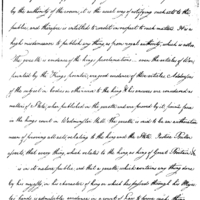 by the authority of the crown, it is the usual way of notifying such acts to the
public, and therefore is entitled to credit in respect to such matters. It is a
high misdemeanor to publish any thing as from royal authority, which is not so.
The gazette is evidence of the king's proclamations: even the articles of war,
printed by the King's printer, are good evidence of those articles. Addresses
of the subject, in bodies or otherwise to the king, & his answers are considered as
matters of State, when published in the gazette and are proved by it, prima facie
in the king's court in Westminster Hall. The gazette is said to be an authoritative
mean of proving all acts relating to the king and the State. Justice Buller
asserts, that every thing, which relates to the king, as king of Great Britain &c
is in its nature public, and that a gazette which contains any thing done
by his majesty, in his character of king or which has passed through his Majesty's
hands is admissible evidence in a court of law to prove such thing.